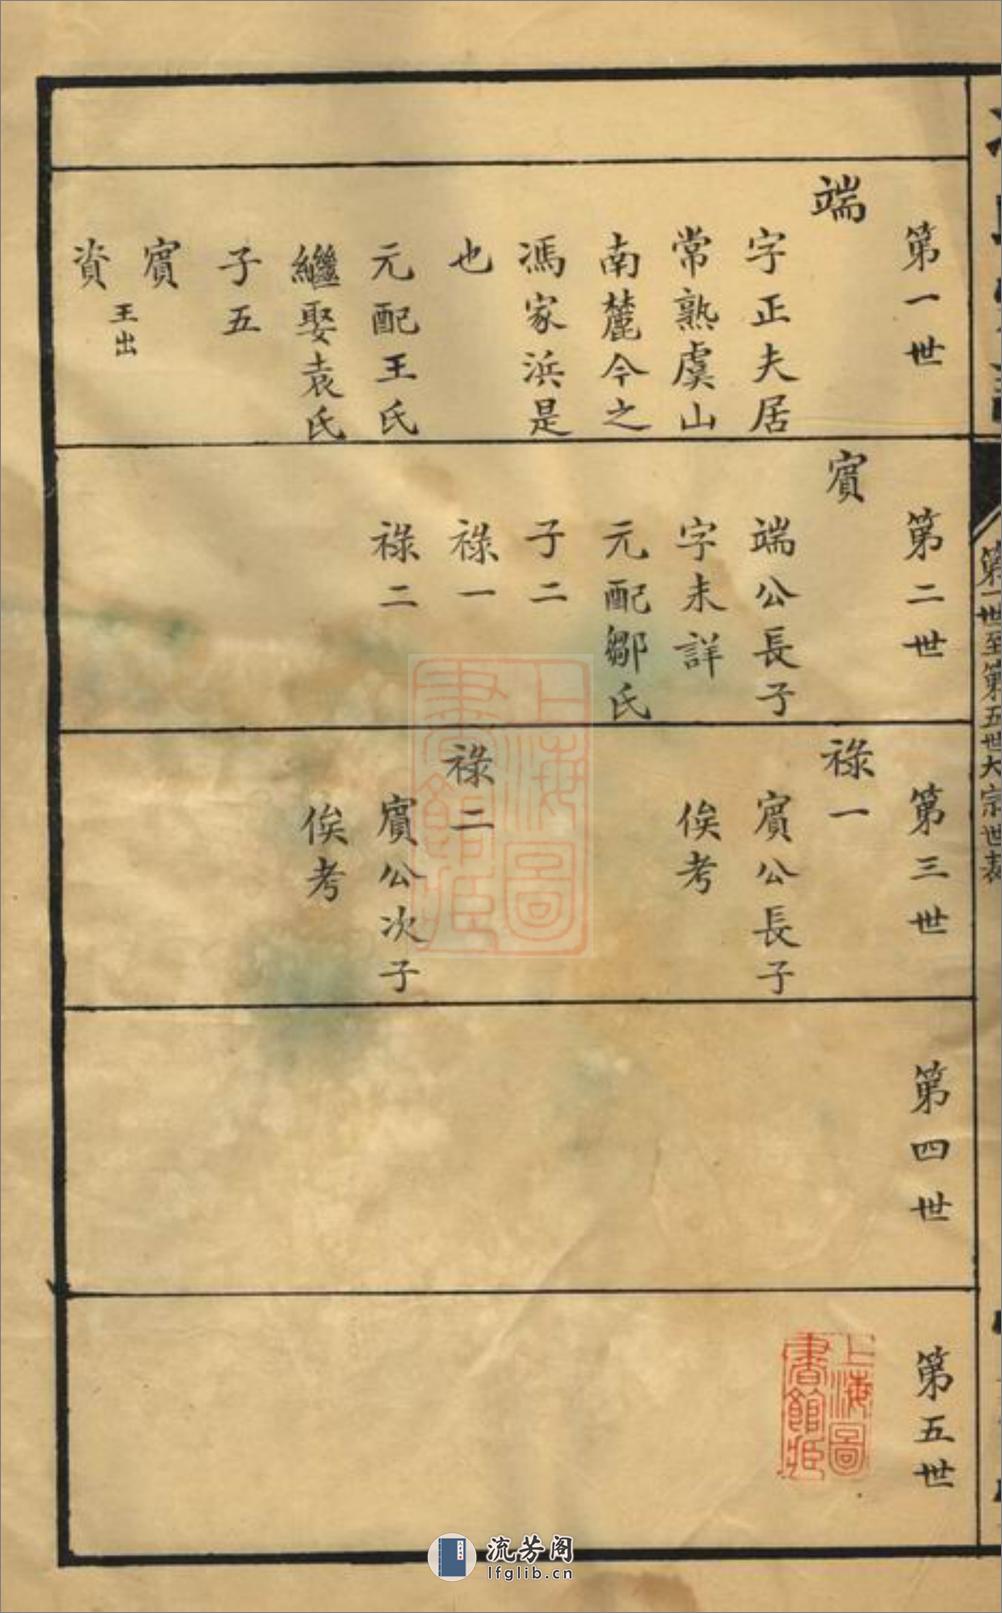 第一世
端
字正夫居
常熟虞山
南麓今之
馮家浜是
也
元配王氏
繼娶袁氏
子五
賔
王出
資
第二世
賔
端公長子
字未詳
元配鄒氏
子二
祿一
祿二
第三世
祿一
賔公長子
俟考
祿二
賔公次子
俟考
第四世
第五世
第一世至第五世大宗世表
上海圖
書館藏
上海圖
書館藏
流芳阁
lfglib.cn